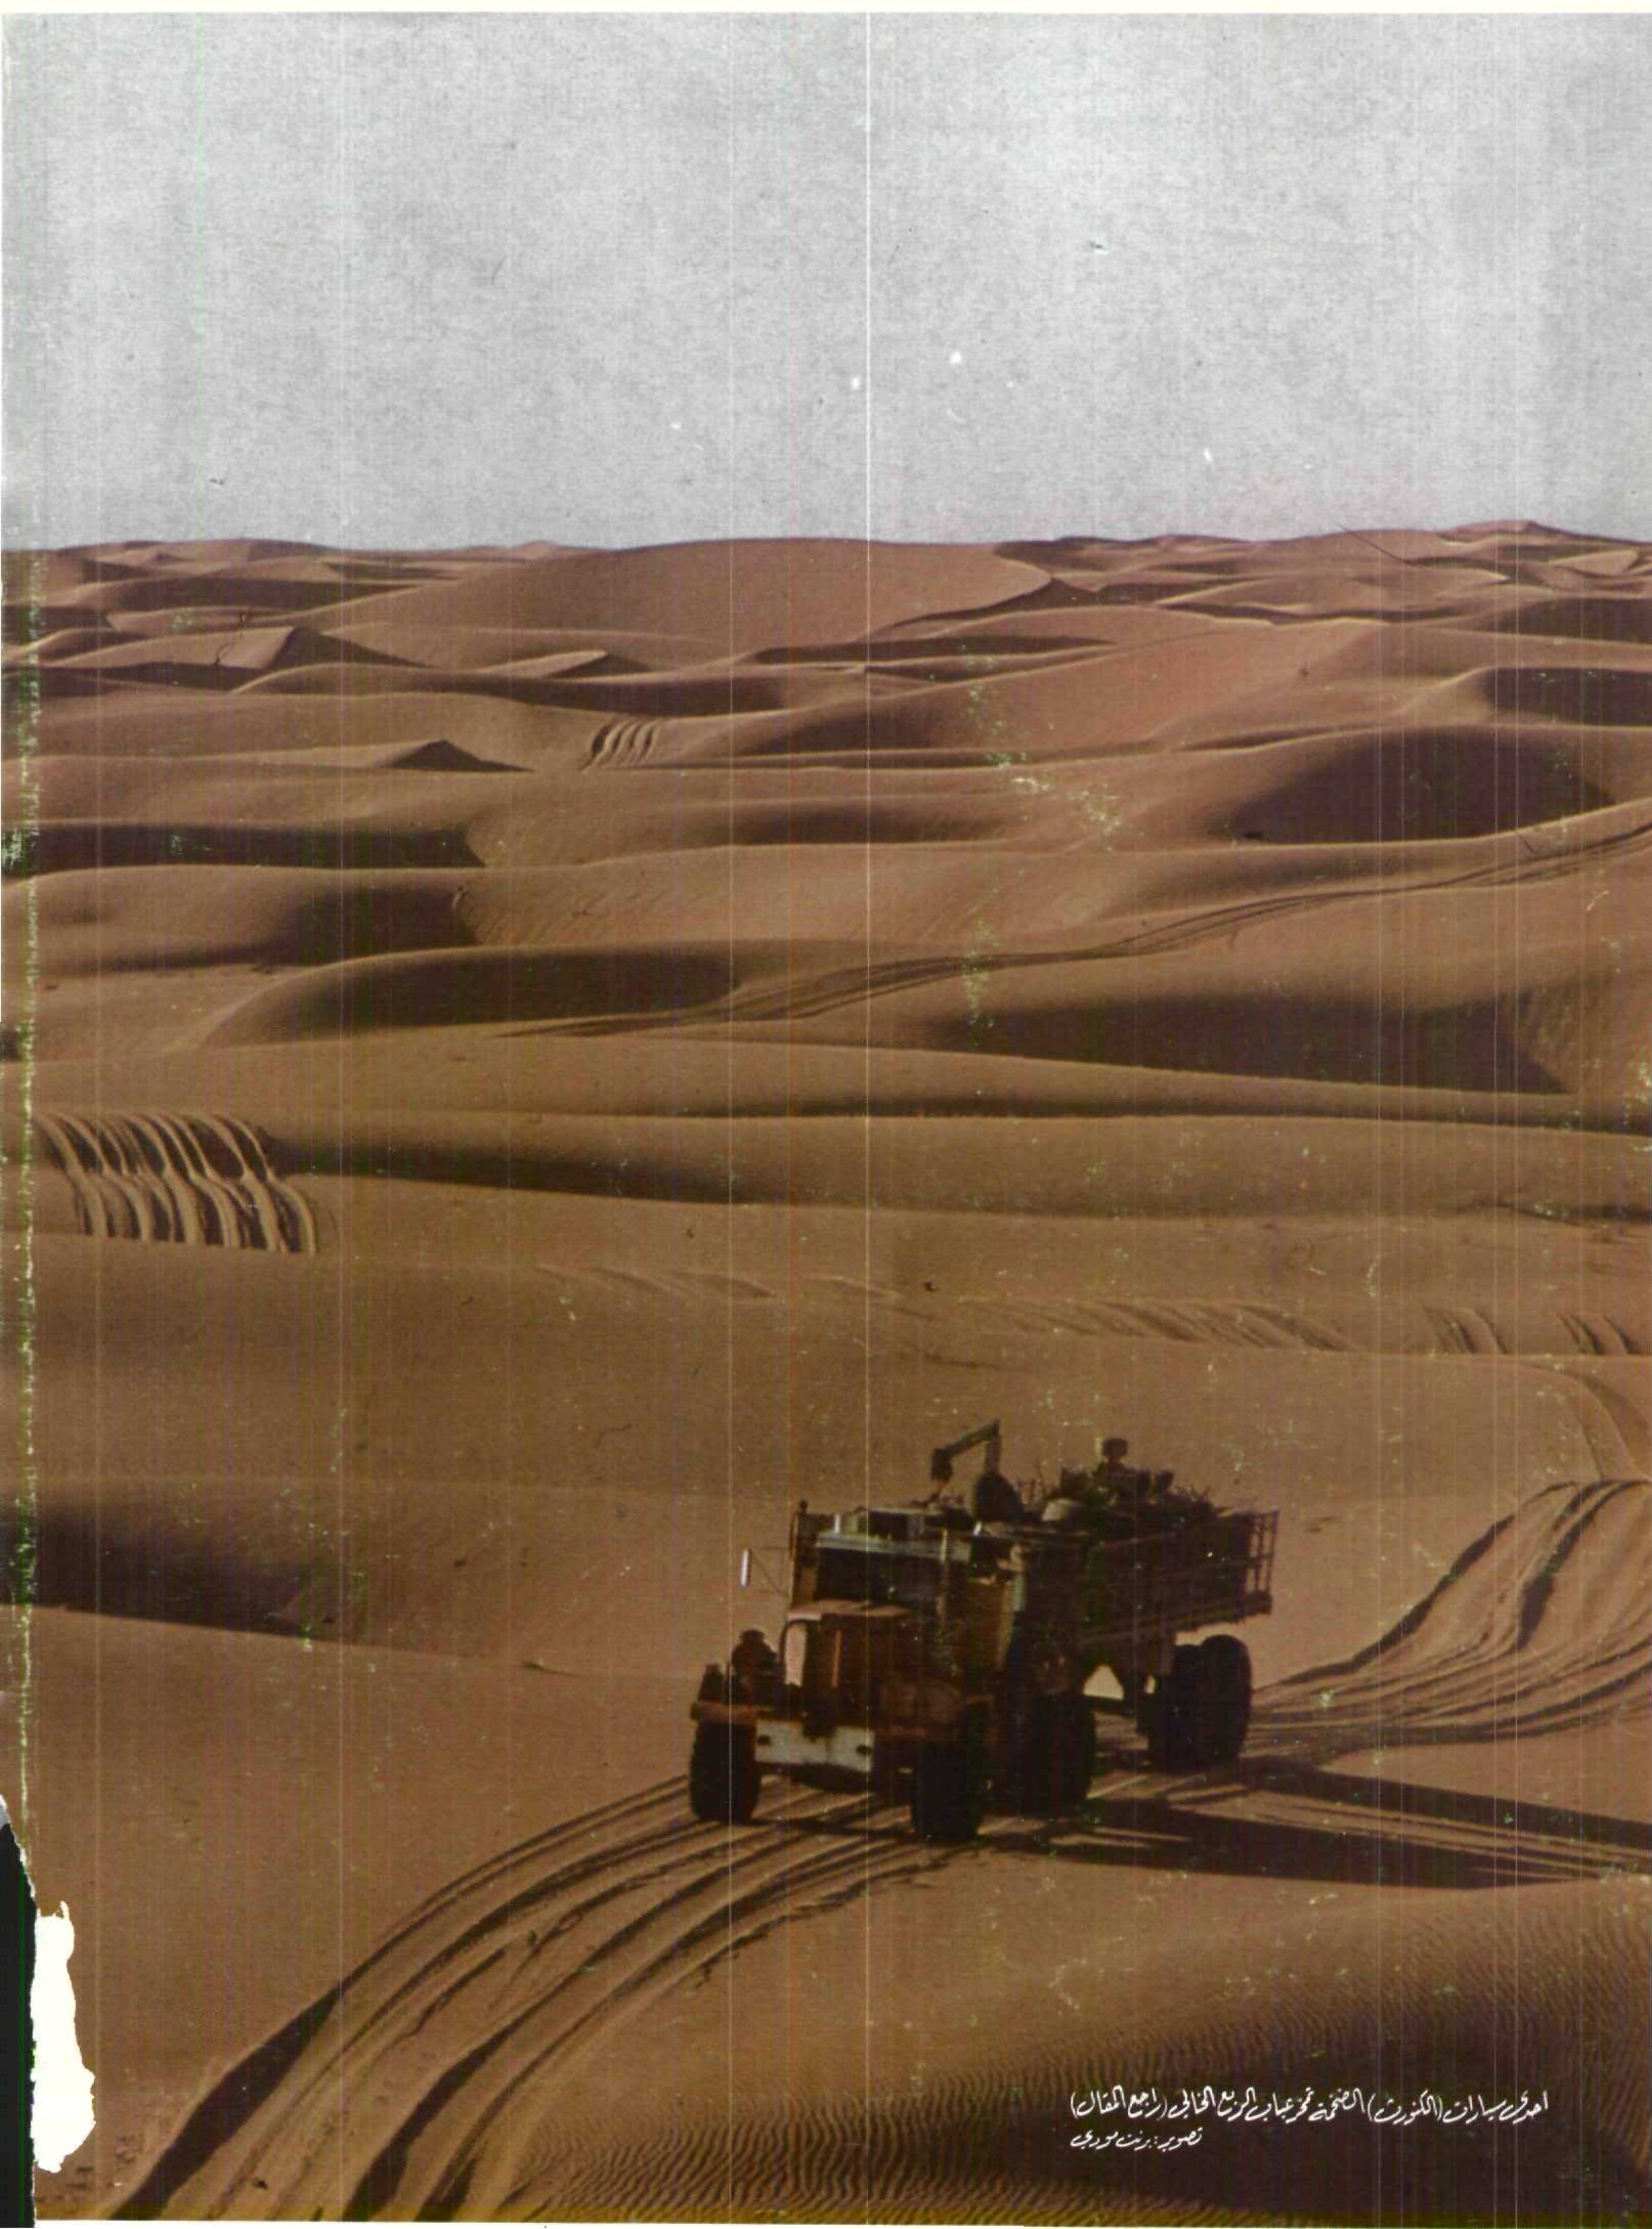 احدى سيارات (الكنورث) الضخمة تمخر عباب الربع الخالي (راجع المقال)
تصوير: برنت مودي